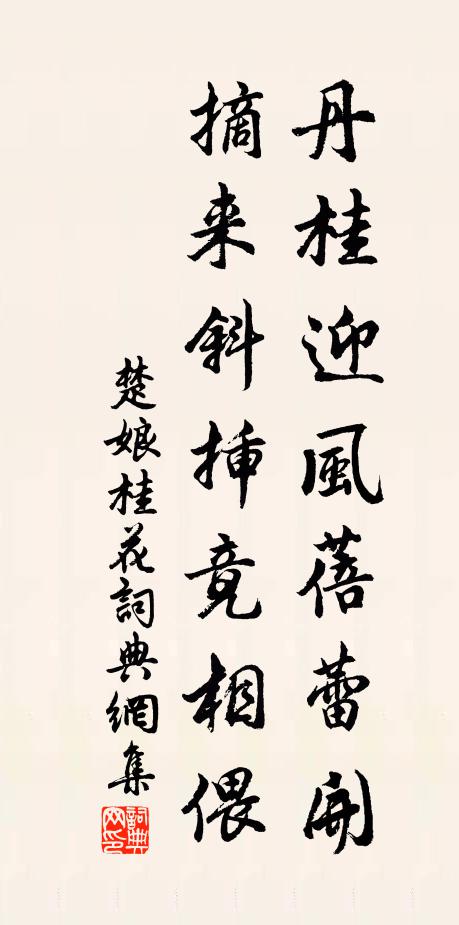 丹桂迎風蓓蕾開
摘来斜插竟相偎
楚娘桂花詞典網集
詞典網印